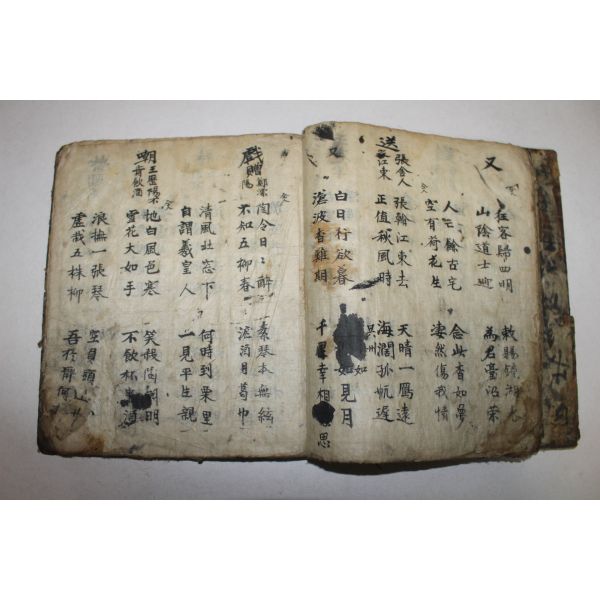 又
狂客歸四明 敕賜鏡湖水
山陰道士迎 為君臺沼榮
人亡餘古宅 念此杳如夢
空有荷花生 凄然傷我情
送張舍人之江東
張翰江東去 天晴一鴈遠
正值秋風時 海濶孤帆遲
白日行欲暮 吳州如見月
滄波杳難期 千里幸相思
戱贈鄭溧陽
陶令日〻醉 素琴本無絃
不知五柳春 漉酒用葛巾
清風北窓下 何時到栗里
自謂羲皇人 一見平生親
嘲王歷陽不肯飲酒
地白風色寒 笑殺陶淵明
雪花大如手 不飲杯中酒
浪撫一張琴 空負頭上
虛栽五株柳 吾於爾何